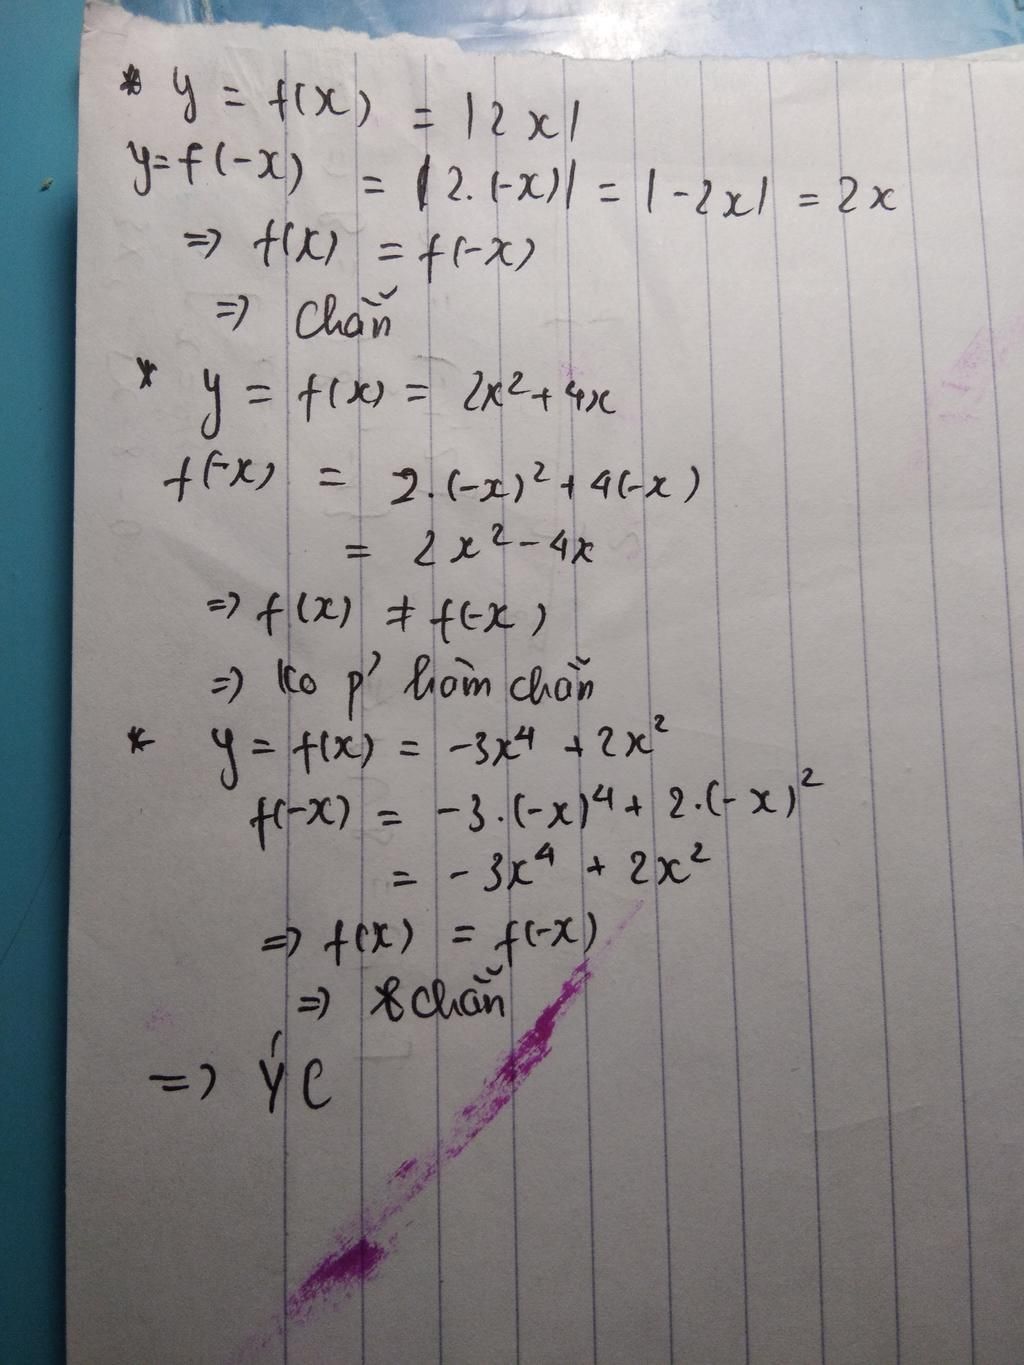 * y = f(x) = |2x|
y=f(-x) = |2.(-x)| = |-2x| = 2x
=> f(x) = f(-x)
=> chẵn
* y = f(x) = 2x² + 4x
f(-x) = 2.(-x)² + 4(-x)
= 2x² - 4x
=> f(x) ≠ f(-x)
=> Ko p' hàm chẵn
* y = f(x) = -3x⁴ + 2x²
f(-x) = -3.(-x)⁴ + 2.(-x)²
= -3x⁴ + 2x²
=> f(x) = f(-x)
=> chẵn
=> Ý C